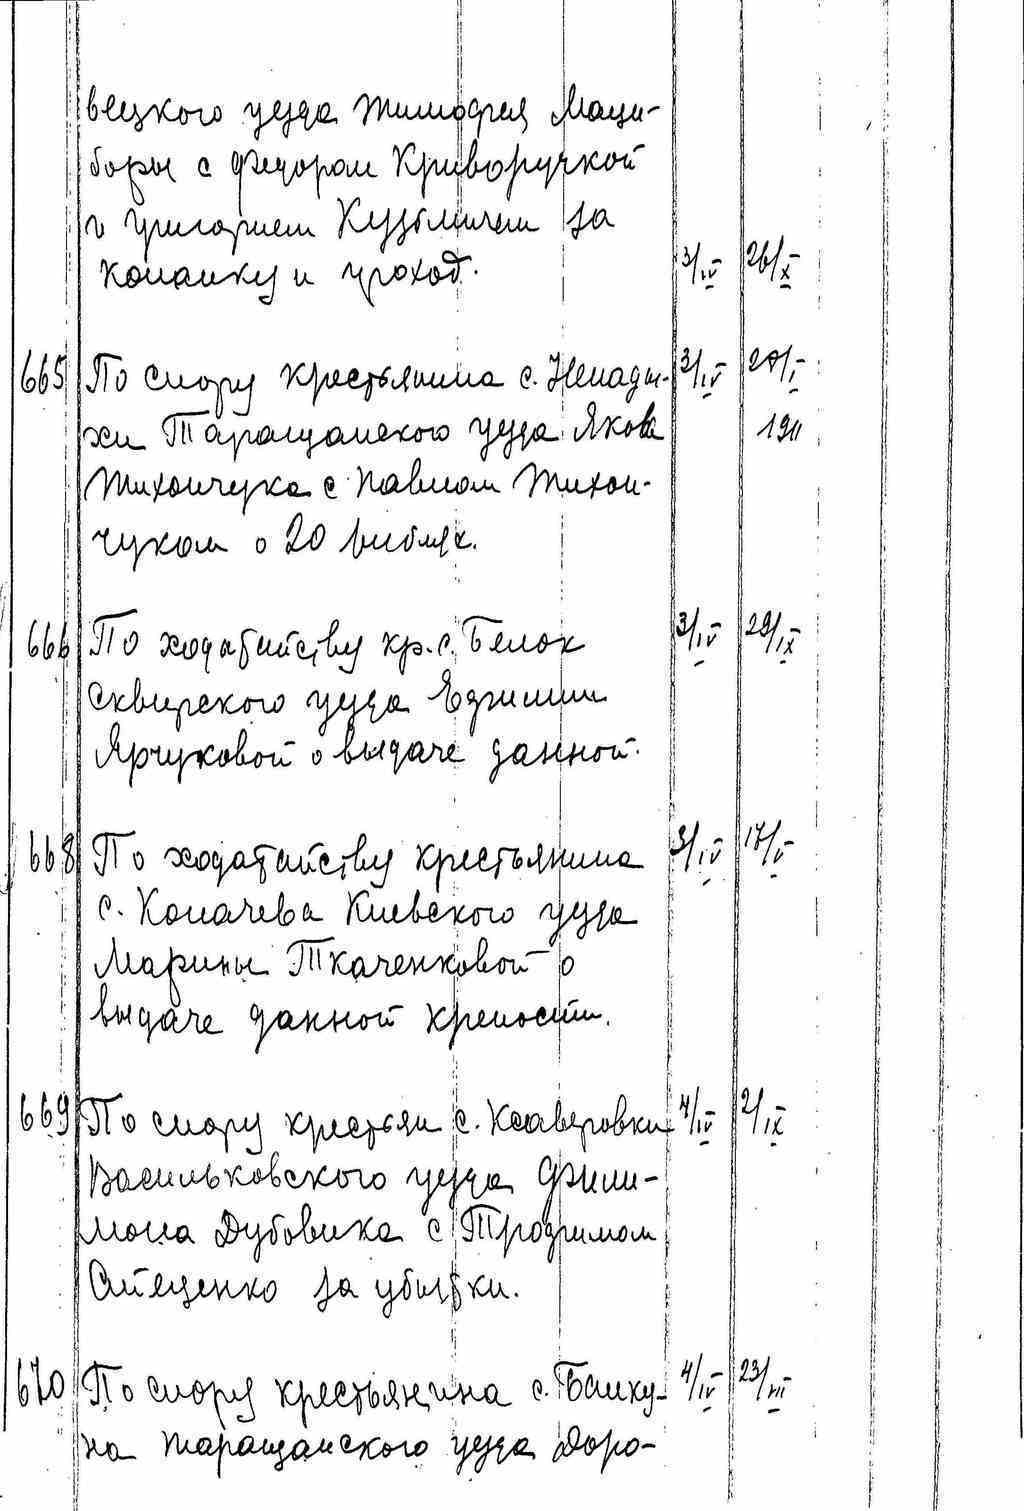 вецкого уезда Тимофея Маци-
боры с Федором Криворучкой
и Григорием Кузьмичем за
копанку и проход. 3/IV 26/X
665 По спору крестьянина с. Ненады- 3/IV 27/I
хи Таращанского уезда Якова 1911
Тихончука с Павлом Тихон-
чуком о 20 рублях.
666 По ходатайству кр. с. Белок 3/IV 29/IX
Сквирского уезда
Ярчуковой о выдаче данной.
668 По ходатайству крестьянина 3/IV 17/V
с. Копачева Киевского уезда
Марины Ткаченковой о
выдаче данной крепости.
669 По спору крестьян с. Ксаверовки 4/IV 2/IX
Васильковского уезда Фили-
мона Дубовика с Трофимом
за убытки.
670 По спору крестьянина с. 4/IV 23/VII
на Таращанского уезда Доро-